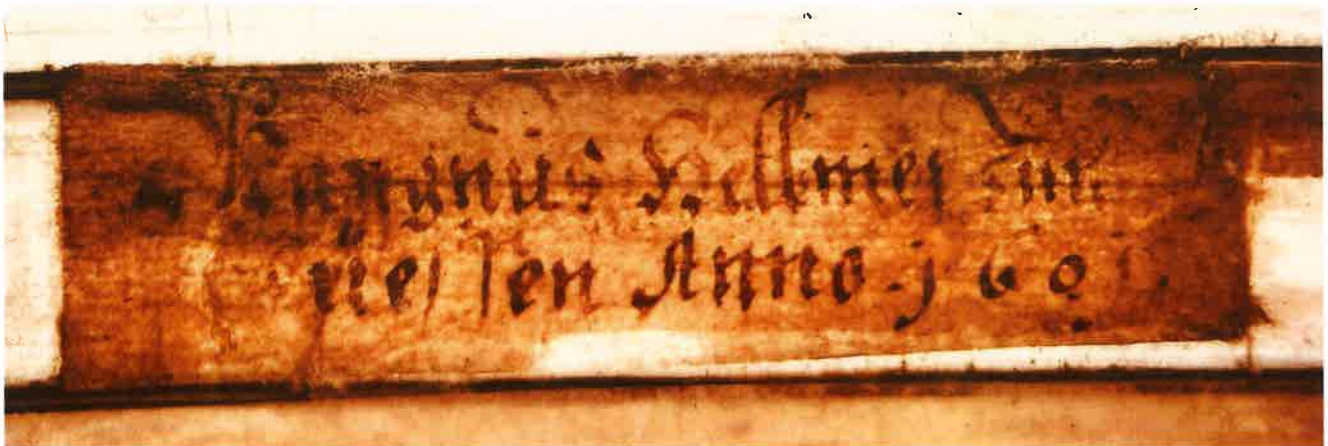 Mangnus Hellmer Zuu
Füessen Anno 160